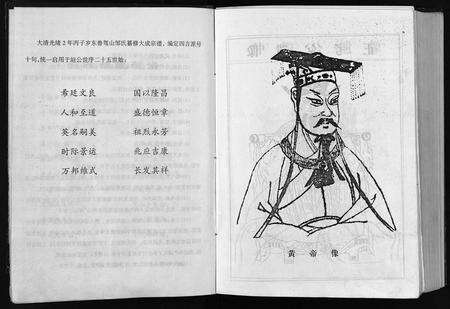 大清光绪2年丙子岁东鲁驾山邹氏纂修大成宗谱，编定四言派号
十句，统一启用于迨公世序二十五世始：
希廷文良 国以隆昌
人和至道 盛德恒章
英名嗣美 祖烈永芳
时际景运 兆应吉康
万邦维式 长发其祥
黄帝像